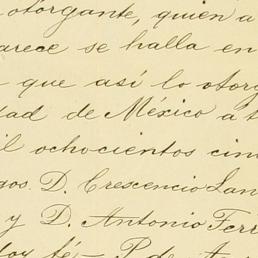 otorgante, quien a
arece se halla en
que así lo otorg
dad de México a t
il ochocientos cin
gos D. Crescencio San
y D. Antonio Ferr
doy fé - P. de A